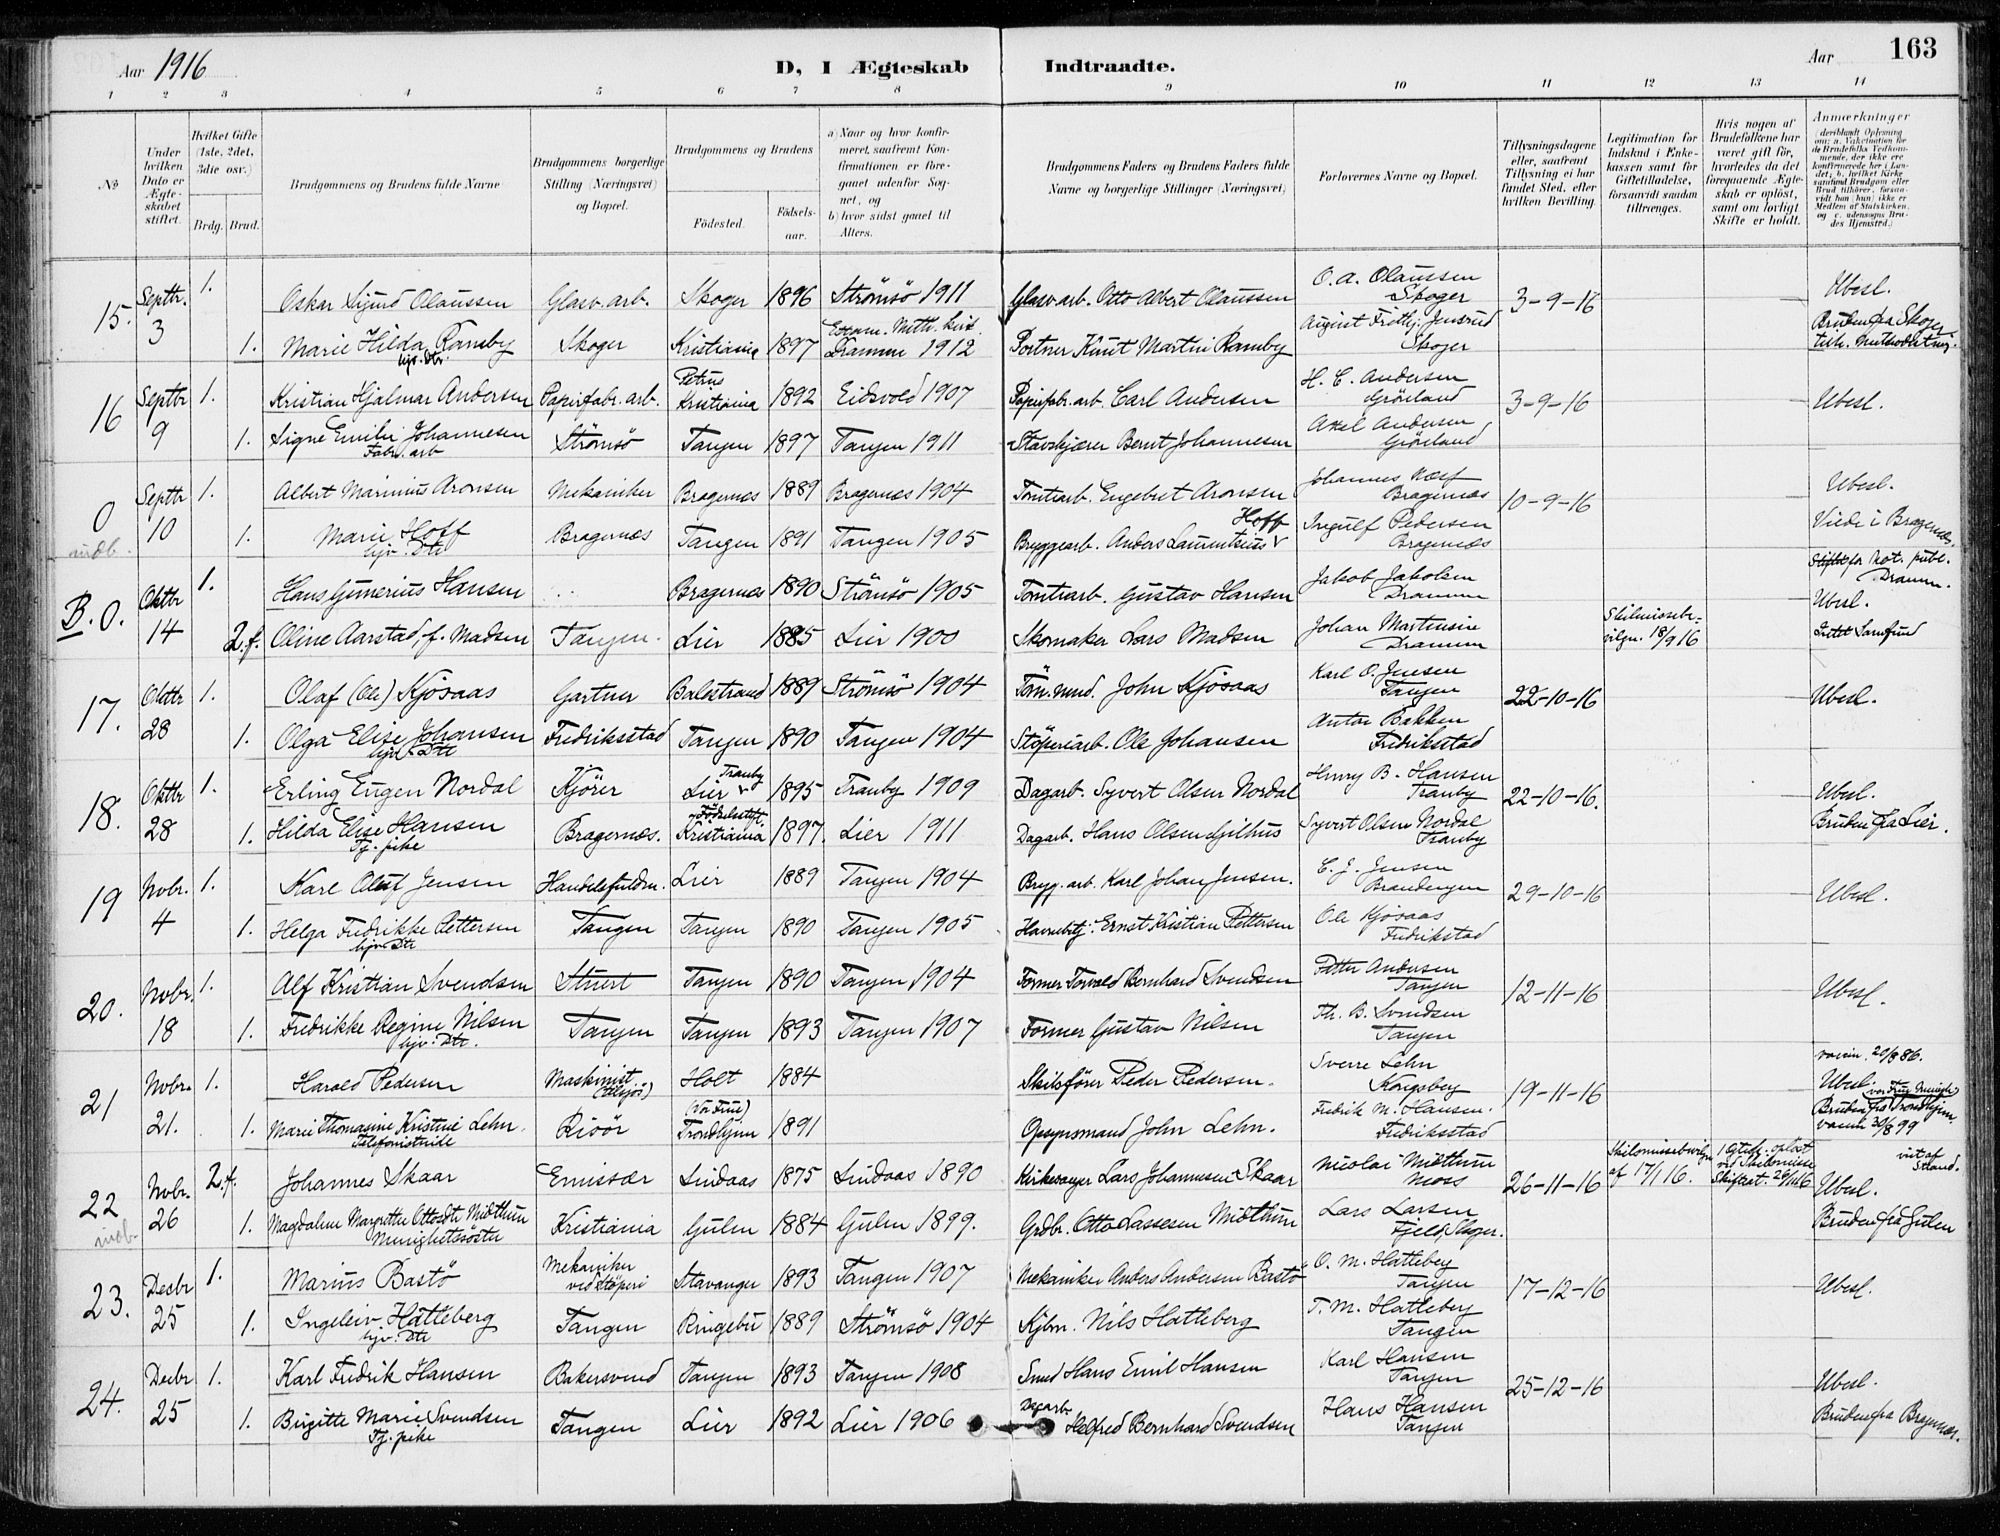 Aar 1916
D, I Ægteskab Indtraadte.
Aar 163
1 2 3 4 5 6 7 8 9 10 11 12 13 14
No
Under hvilken Dato er Ægteskabet stiftet.
Hvilket Gifte (1ste, 2det, 3die osv.)
Brdg. Brud.
Brudgommens og Brudens fulde Navne
Brudgommens borgerlige Stilling (Næringsvei) og Bopæl.
Brudgommens og Brudens
Fødested. Fødselsaar.
a) Naar og hvor konfirmeret, saafremt Konfirmationen er foregaaet udenfor Sognet, og
b) hvor sidst gaaet til Alters.
Brudgommens Faders og Brudens Faders fulde Navne og borgerlige Stillinger (Næringsvei)
Forlovernes Navne og Bopæl.
Tillysningsdagene eller, saafremt Tillysning ei har fundet Sted, efter hvilken Bevilling.
Legitimation for Indskud i Enkekassen samt for Giftetilladelse, forsaavidt saadan tiltrænges.
Hvis nogen af Brudefolkene har været gift før, hvorledes da det foregaaende Ægteskab er opløst, samt om lovligt Skifte er holdt.
Anmærkninger
(deriblandt Oplysning om: a. Vakcination for de Brudefolks Vedkommende, der ikke ere konfirmerede her i Landet; b. hvilket Kirkesamfund Brudgom eller Brud tilhører, forsaavidt han (hun) ikke er Medlem af Statskirken, og c. udensogns Brudes Hjemsted.)
15. Septbr. 3 1. Oskar Sigurd Olaussen Glasv. arb. Skoger 1896 Strömsö 1911 Glasv. arb. Otto Albert Olaussen O. A. Olaussen Skoger 3-9-16 Ubesl.
1. Marie Hilda Ramby hjv. Dtr. Skoger Kristiania 1897 Meth. kirk. Dramm 1912 Portner Knut Martin Ramby August Frithj. Jensrud Skoger Bruden fra Skoger
16 Septbr 9 1. Kristian Hjalmar Andersen Papirfabr. arb. Petrus Kristiania 1892 Eidsvold 1907 Papirfabr. arb. Carl Andersen H. C. Andersen Grönland 3-9-16 Ubesl.
1. Signe Emilie Johannesen Fabr. arb Strömsö Tangen 1897 Tangen 1911 Stavskjærer Bernt Johannesen Axel Andersen Grönland
0 Septbr 10 1. Albert Marinius Aronsen Mekaniker Bragernæs 1889 Bragernæs 1904 Tomtearb. Engebret Aronsen Johannes Næss Bragernæs 10-9-16 Ubesl.
indb. 1. Marie Hoff hjv. Dtr Bragernæs Tangen 1891 Tangen 1905 Bryggearb. Anders Laurentsius Hoff Ingulf Pedersen Bragernæs Viede i Bragernæs.
B. 0. Oktbr 14 1. Hans Gunerius Hansen Bragernæs 1890 Strömsö 1905 Tomtearb. Gustav Hansen Jakob Jakobsen Dramm Stiftet for Not. publ. Dramm. Ubesl.
2. f. Oline Aarstad, f. Madsen Tangen. Lier 1885 Lier 1900 Skomaker Lars Madsen Johan Martinsen Dramm Skilmissebevilgn. 18/9 16 Intet Samfund
17. Oktbr 28 1. Olaf (Ole) Kjösaas Gartner Balestrand 1889 Strömsö 1904 Töm.mnd. John Kjösaas Karl O. Jensen Tangen 22-10-16 Ubesl.
1. Olga Elise Johansen hjv. Dtr Fredriksstad Tangen 1890 Tangen 1904 Støperiarb. Ole Johansen Anton Bakken Fredriksstad
18. Oktbr 28 1. Erling Eugen Nordal Kjörer Tranby Lier 1895 Tranby 1909 Dagarb. Syvert Olsen Nordal Henry B. Hansen Tranby 22-10-16. Ubesl.
1. Hilda Elise Hansen Tj. pike Bragernæs. Födselsstift. Kristiania 1897. Lier 1911 Dagarb. Hans Olsen Gilhus Syvert Olsen Nordal Tranby Bruden fra Lier.
19 Novbr. 4 1. Karl Oluf Jensen Handelsfuldm. Lier 1889 Tangen 1904 Bryg. arb. Karl Johan Jensen. C. J. Jensen Brandengen 29-10-16 Ubesl.
1. Helga Fredrikke Pettersen hjv. Dtr Tangen Tangen 1890 Tangen 1905 Havnebtj. Ernst Kristian Pettersen Ole Kjösaas Fredrikstad
20. Novbr. 18 1. Alf Kristian Svendsen Stuert Tangen 1890 Tangen 1904 Former Torvald Bernhard Svendsen Petter Andersen Tangen 12-11-16 Ubesl.
1. Fredrikke Regine Nilsen hjv. Dtr. Tangen Tangen 1893 Tangen 1907 Former Gustav Nilsen Th. B. Svendsen Tangen
21 Novbr. 21. 1. Harald Pedersen Maskinist Holt 1884 Skibsfører Peder Pedersen. Sverre Lehn Kongsberg 19-11-16 vaccin. 20/8 86. Ubesl.
1. Marie Thomasine Kristine Lehn. Telefonistinde Risör (Vor Frue) Trondhjem 1891 Opsynsmand John Lehn. Fredrik M. Hansen. Fredriksstad Bruden fra Vor Frue Menigh. Trondhjem. vaccin 30/8 99
22 Novbr. 26 2. f. Johannes Skaar Emissær Lindaas 1875 Lindaas 1890 Kirkesanger Lars Johannesen Skaar Nicolai Midthun Moss 26-11-16 Skilsmissebevilgn af 17/1 16. Ubesl.
indb. 1. Magdalena Margrethe Ottosdtr Midthun Menighetssöster Kristiania Gulen 1884 Gulen 1899. Grdbr. Otto Lassesen Midthun Lars Larsen Fjeld, Skoger. Bruden fra Gulen
23. Decbr 25 1. Marius Bastö Mekaniker ved Støperi Stavanger 1893 Tangen 1907 Mekaniker Anders Andersen Bastö O. M. Hatteberg Tangen 17-12-16 Ubesl.
1. Ingeleiv Hatteberg hjv. Dtr Tangen Ringebu 1889 Strömsö 1904 Kjbm. Nils Hatleberg T. M. Hatleberg Tangen
24. Decbr 25 1. Karl Fredrik Hansen Bakersvend Tangen 1893 Tangen 1908 Smed Hans Emil Hansen Karl Hansen Tangen 25-12-16 Ubesl.
1. Birgitte Marie Svendsen Tj. pike Tangen Lier 1892 Lier 1906 Dagarb. Helfred Bernhard Svendsen Hans Hansen Tangen Bruden fra Bragernæs.